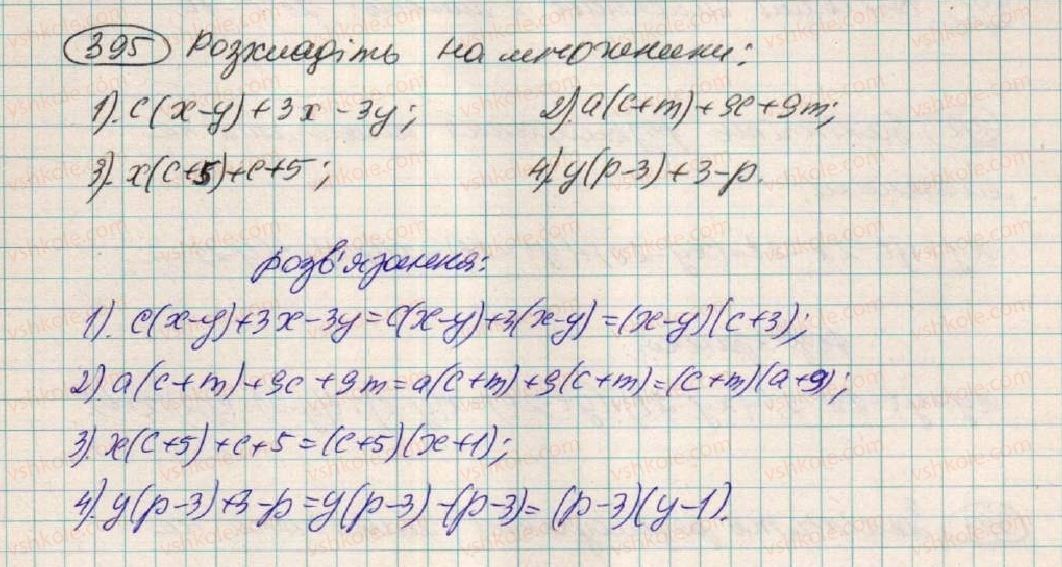 395 Розкладіть на множники:
1). c(x-y)+3x-3y; 2). a(c+m)+9c+9m;
3). x(c+5)+c+5; 4). y(p-3)+3-p.
розв'язання:
1). c(x-y)+3x-3y=c(x-y)+3(x-y)=(x-y)(c+3);
2). a(c+m)+9c+9m=a(c+m)+9(c+m)=(c+m)(a+9);
3). x(c+5)+c+5=(c+5)(x+1);
4). y(p-3)+3-p=y(p-3)-(p-3)=(p-3)(y-1).